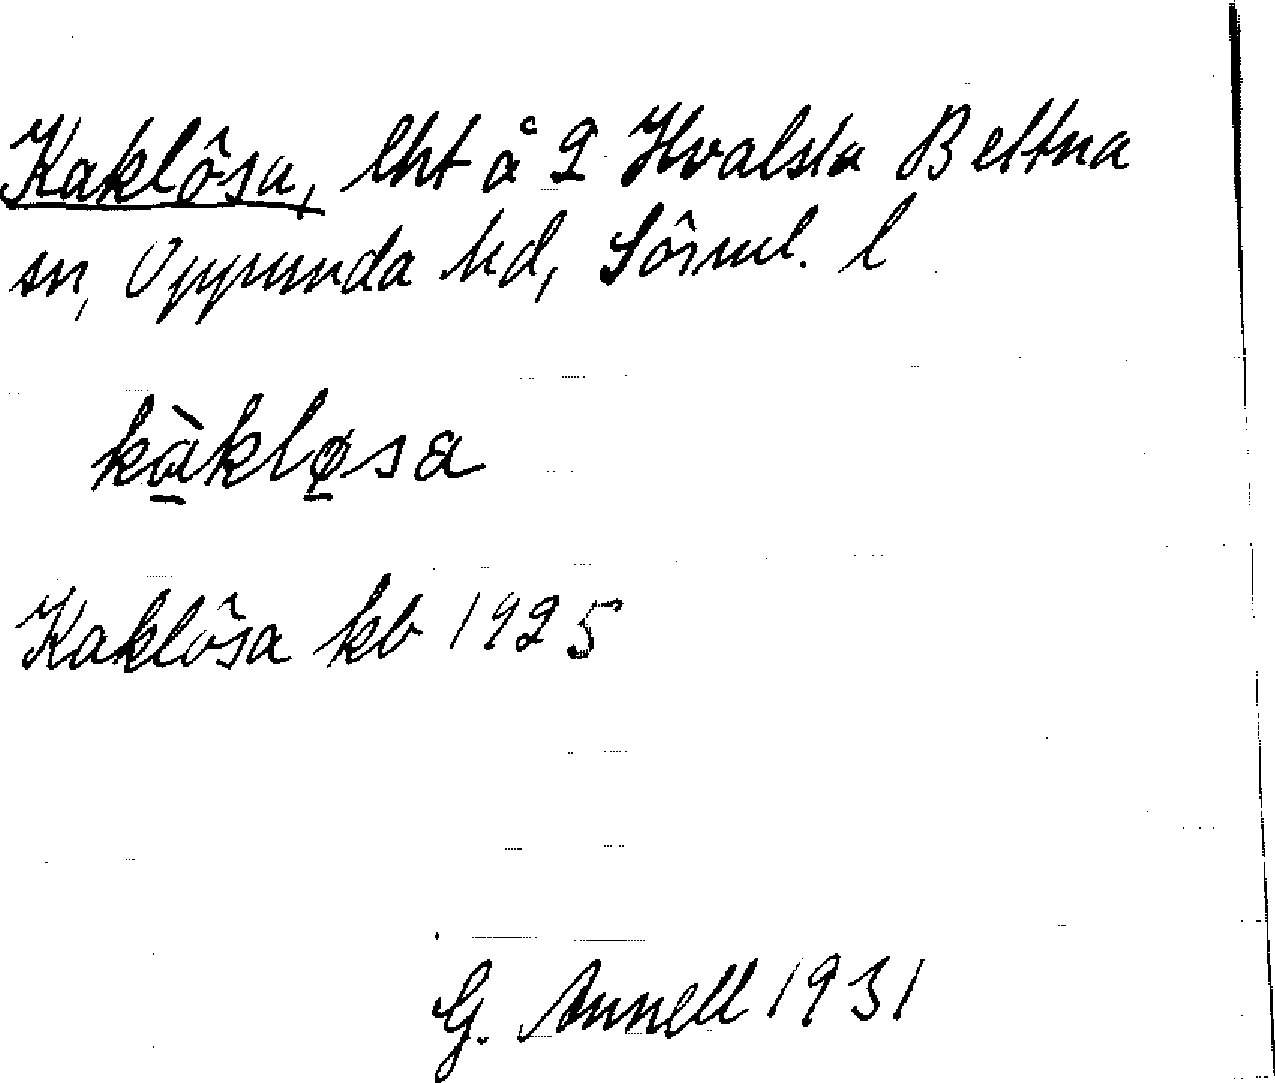 Kaklösa, lht å 2 Hvalsta Bettna
sn, Oppunda hd, Sörml. l
kàkløsa
Kaklösa kb 1925
G. Annell 1931